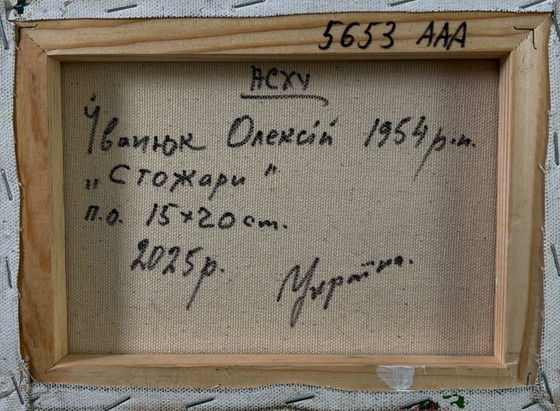 5653 ААА
НСХУ
Іванюк Олексій 1954 р.н.
„Стожари"
п.о. 15×20 ст.
2025 р.
Україна.